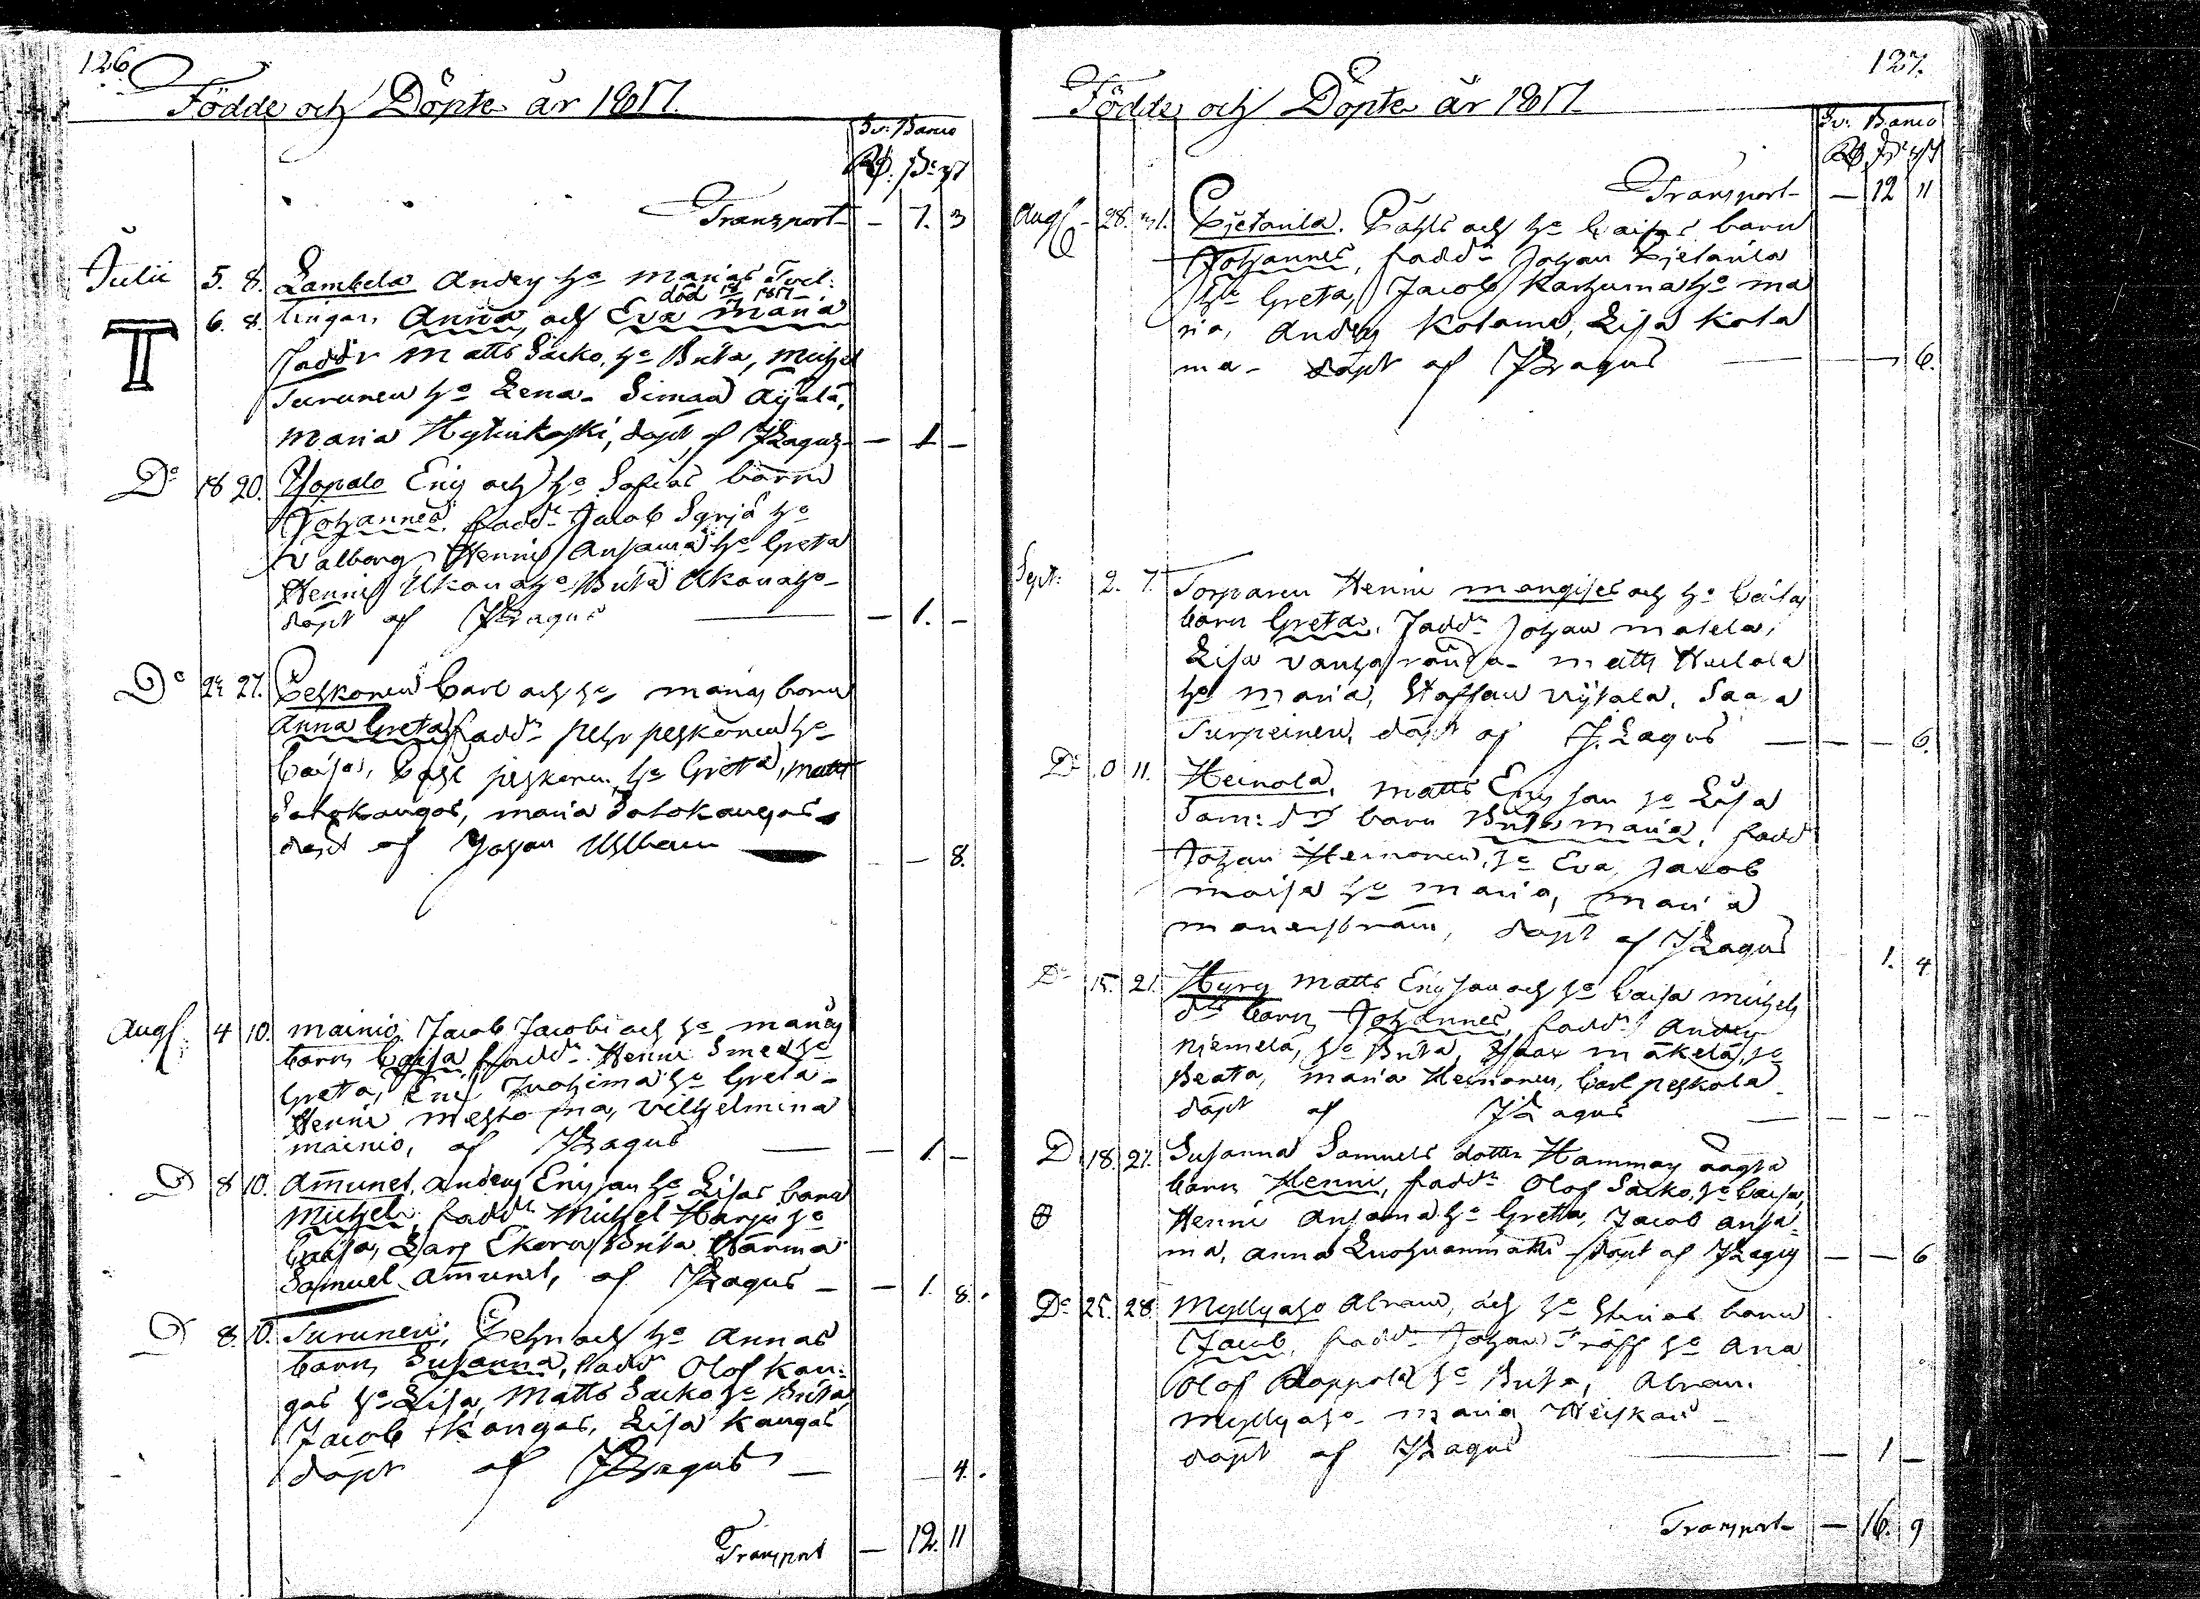 126
Födde och Döpte år 1817.
Sv: Banco
Rd. s. rst
Transport — 7. 3
Julii 5. 8. Lambela Anders hu Marias Tvil:
död 18 17/7 1817
6. 8. lingar, Anna och Eva Maria
Faddr Matts Sacko, hu Brita, Michel
Turunen hu Lena. Simon Äijälä,
Maria Hytinkoski, döpt af J Lagus — 1 —
Do 18 20. Yopalo Eric och hu Sofias barn
Johannes. fadd: Jacob Syrjä hu
Valborg, Henric Ansama hu Greta
Henric Ukonaho Brita Ukonaho
döpt af J Lagus — 1. —
Do 24 27. Peskonen Carl och hu Marias barn
Anna Greta, fadd: Pehr Peskonen hu
Caisa, Carl Peskonen, hu Greta, Matts
Salokangas, Maria Salokangas
döpt af Johan Uhlbom — — 8.
Aug: 4 10. Mainio Jacob Jacobs och hu Marias
barn Caisa fadd: Henric Smed hu
Greta, Eric Juohima hu Greta
Henric mainio, af J Lagus — 1. —
Vilhelmina
D 8 10. Amunet, Anders Ericson hu Lisas barn
Michel, fadd: Michel Harju hu
Caisa, Lars Ekoro Brita Harma
Samuel Amunet, af J Lagus — 1. 8.
D 8. 10. Turunen, Pehr och hu Annas
barn Susanna, fadd: Olof Kan:
gas hu Lisa, Matts Sacko hu Brita
Jacob Kangas, Lisa Kangas
döpt af J Lagus — — 4.
Transport — 12. 11
127.
Födde och Döpte år 1817.
Sv. Banco
Rd s. rst
Transport — 12 11
Aug: 28. 31. Pjetarila. Påhls och hu Caisas barn
Johannes, fadd: Johan Pjetarila
hu Greta, Jacob Karhuma hu Ma
ria, Anders Kotama, Lisa Kota
ma. döpt af J Lagus — — 6.
Sept: 2. 7. Torparen Henric Mangises och hu Caisas
barn Greta. Fadd: Johan Matela,
Lisa Matts Heilala
hu Maria, Staffan Vijtala. Saara
Turpeinen, döpt af J. Lagus — — 6.
Do 0 11. Heinola, Matts Ericson hu Lisa
Sam: dr barn Brita Maria, fadd:
Johan Heinonen, hu Eva, Jacob
Maisa hu Maria, Maria
döpt af J Lagus 1. 4
Do 15. 21. Hyry Matts Ericson och hu Caisa Michels
drs barn Johannes, fadd: Anders
Niemelä, hu Brita, Isaac Mäkelä, hu
Beata, Maria Heinonen, Carl Peskola
döpt af J Lagus — — —
D 18. 21. Susanna Samuels dotter Hammars oägta
barn Henric, fadd: Olof Sacko, hu Caisa,
Henric Ansama hu Gretha, Jacob Ansa-
ma, Anna Luohuanmatti döpt af J Lagus — — 6
Do 25. 28. Myllyaho Abram, och hu Stinas barn
Jacob, fadd: Johan Träff hu Ana
Olof Roppola hu Brita, Abram
Myllyaho. Maria Heiskari
döpt af J Lagus — 1 —
Transport — 16. 9